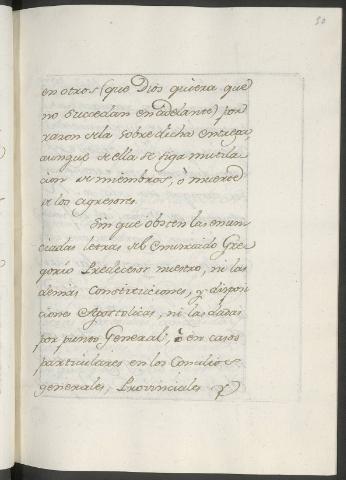 50
en otros (que Dios quiera que
no sucedan en adelante) por
razon de la sobredicha entrega
aunque de ella se siga mutila
cion de miembros, ò muerte
de los agresores.
Sin que obsten las enun
ciadas letras del enunciado Gre
gorio Predecesor nuestro, ni las
demás Constituciones, y dispon
ciones Apostolicas, ni las dadas
por punto General, ò en casos
particulares en los Concilios
generales, Provinciales y